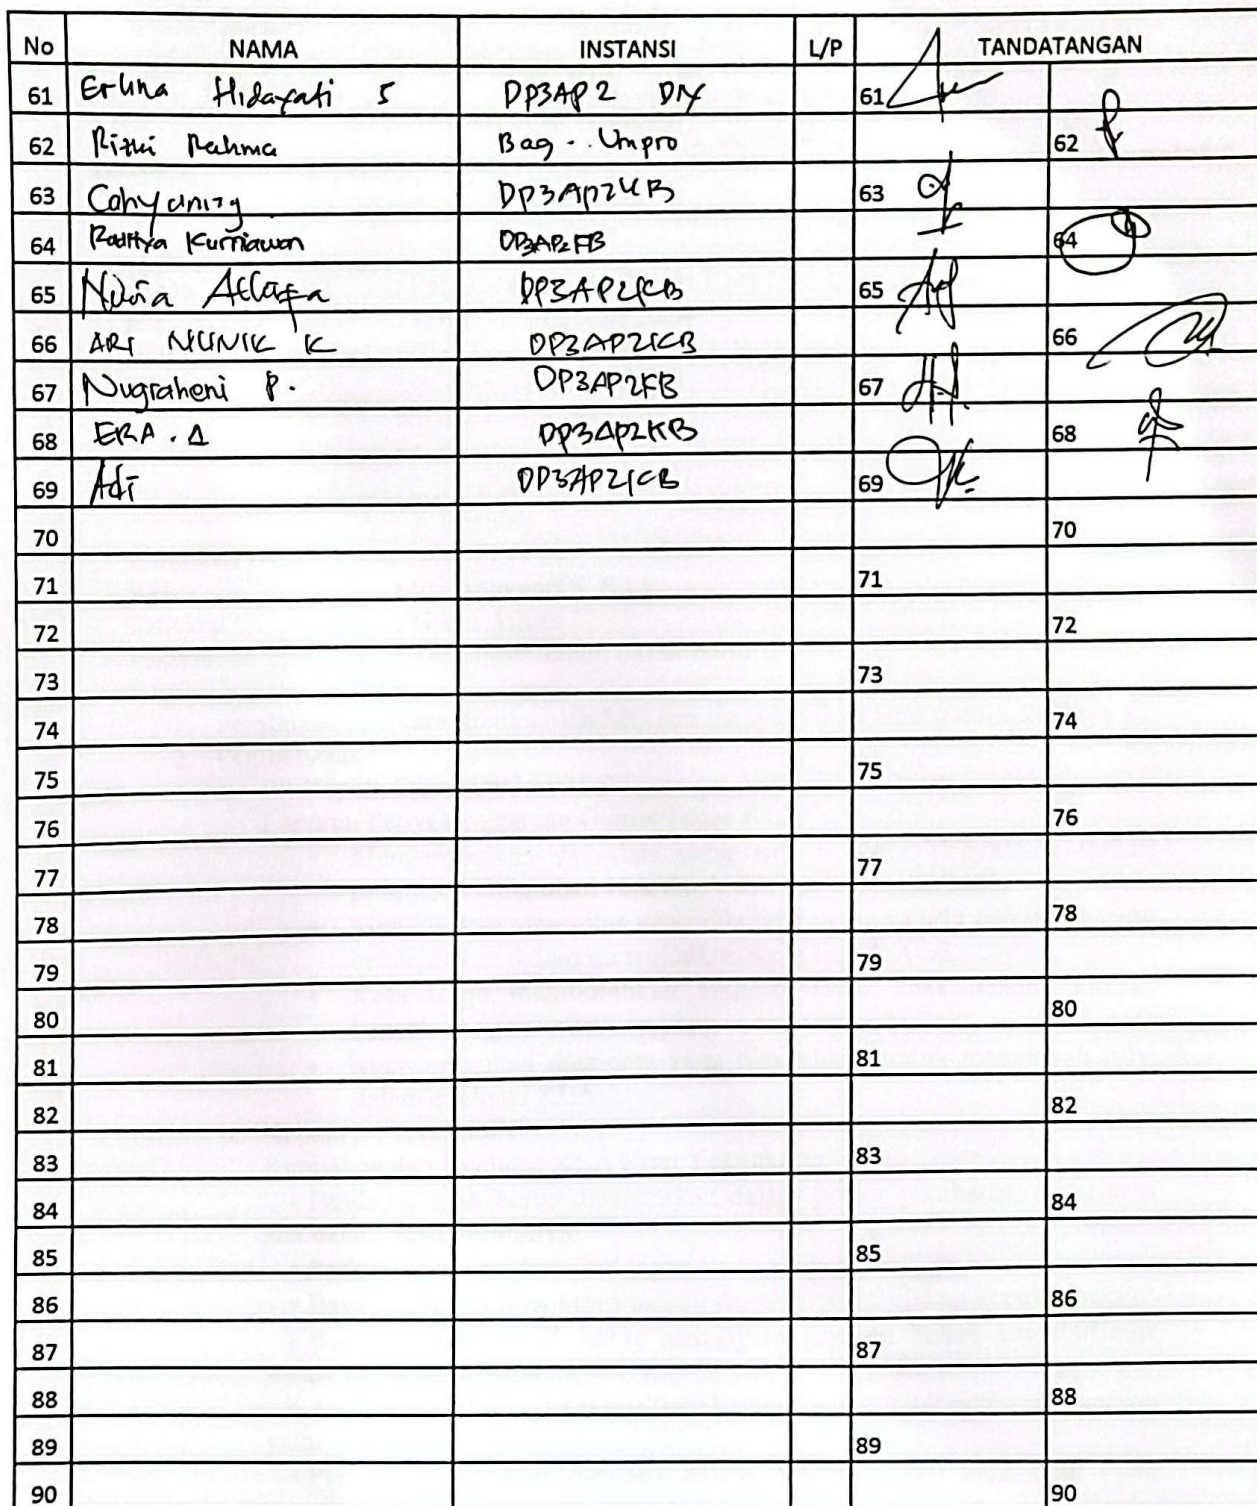 No NAMA INSTANSI L/P TANDATANGAN
61 Erlina Hidayati S DP3AP2 DIY 61
62 Rizki Rahma Bag. Umpro 62
63 Cahyaning DP3AP2KB 63
64 Raditya Kurniawan DP3AP2KB 64
65 DP3AP2KB 65
66 ARI NUNIK K DP3AP2KB 66
67 Nugraheni P. DP3AP2KB 67
68 ERA. A DP3AP2KB 68
69 Adi DP3AP2KB 69
70 70
71 71
72 72
73 73
74 74
75 75
76 76
77 77
78 78
79 79
80 80
81 81
82 82
83 83
84 84
85 85
86 86
87 87
88 88
89 89
90 90